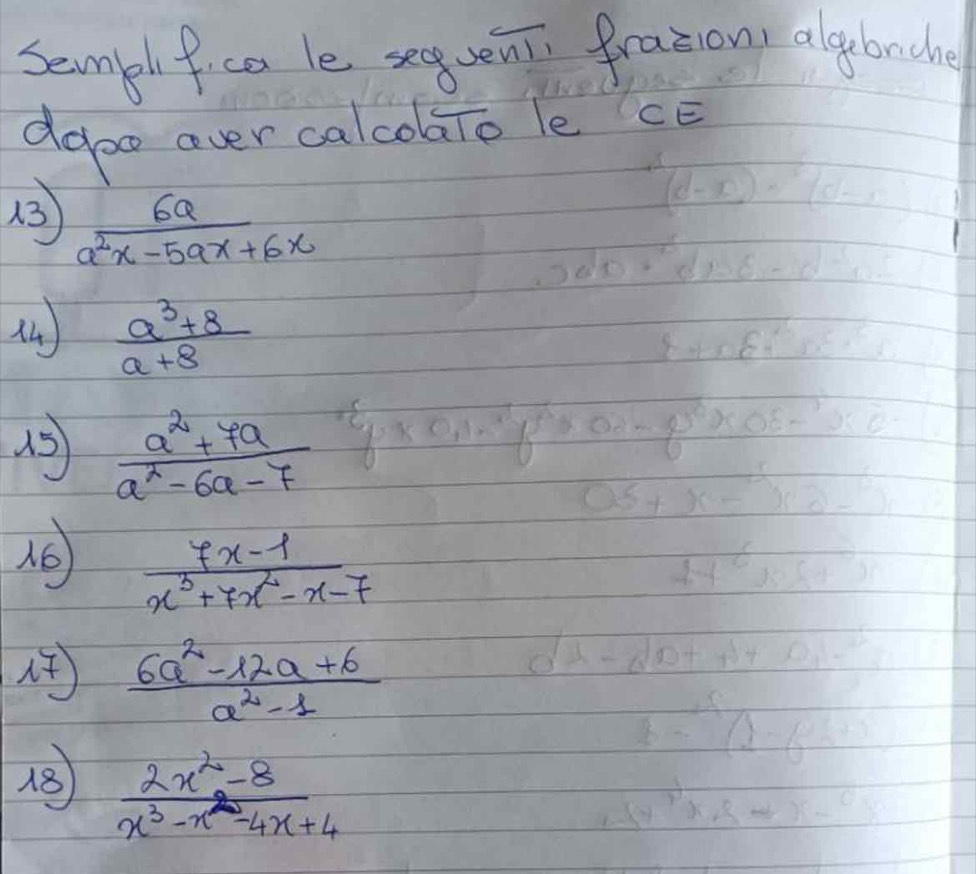 Semplifica le seguenti frazioni algebriche
dopo aver calcolato le CE
13) 6a / a²x-5ax+6x
14) a³+8 / a+8
15) a²+7a / a²-6a-7
16) 7x-1 / x³+7x²-x-7
17) 6a²-12a+6 / a²-1
18) 2x²-8 / x³-x²-4x+4